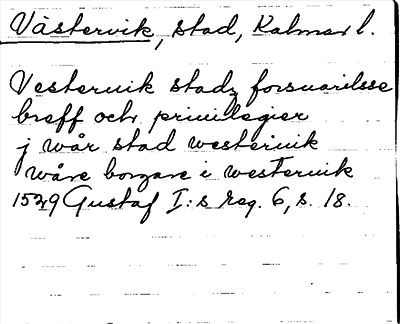 Västervik, stad, Kalmar l.
Vesteruik stadz forsuarilsse
breff och priuillegier
j wår stad westeruik
wåre borgare i westeruik
1529 Gustaf I:s reg. 6, s. 18.